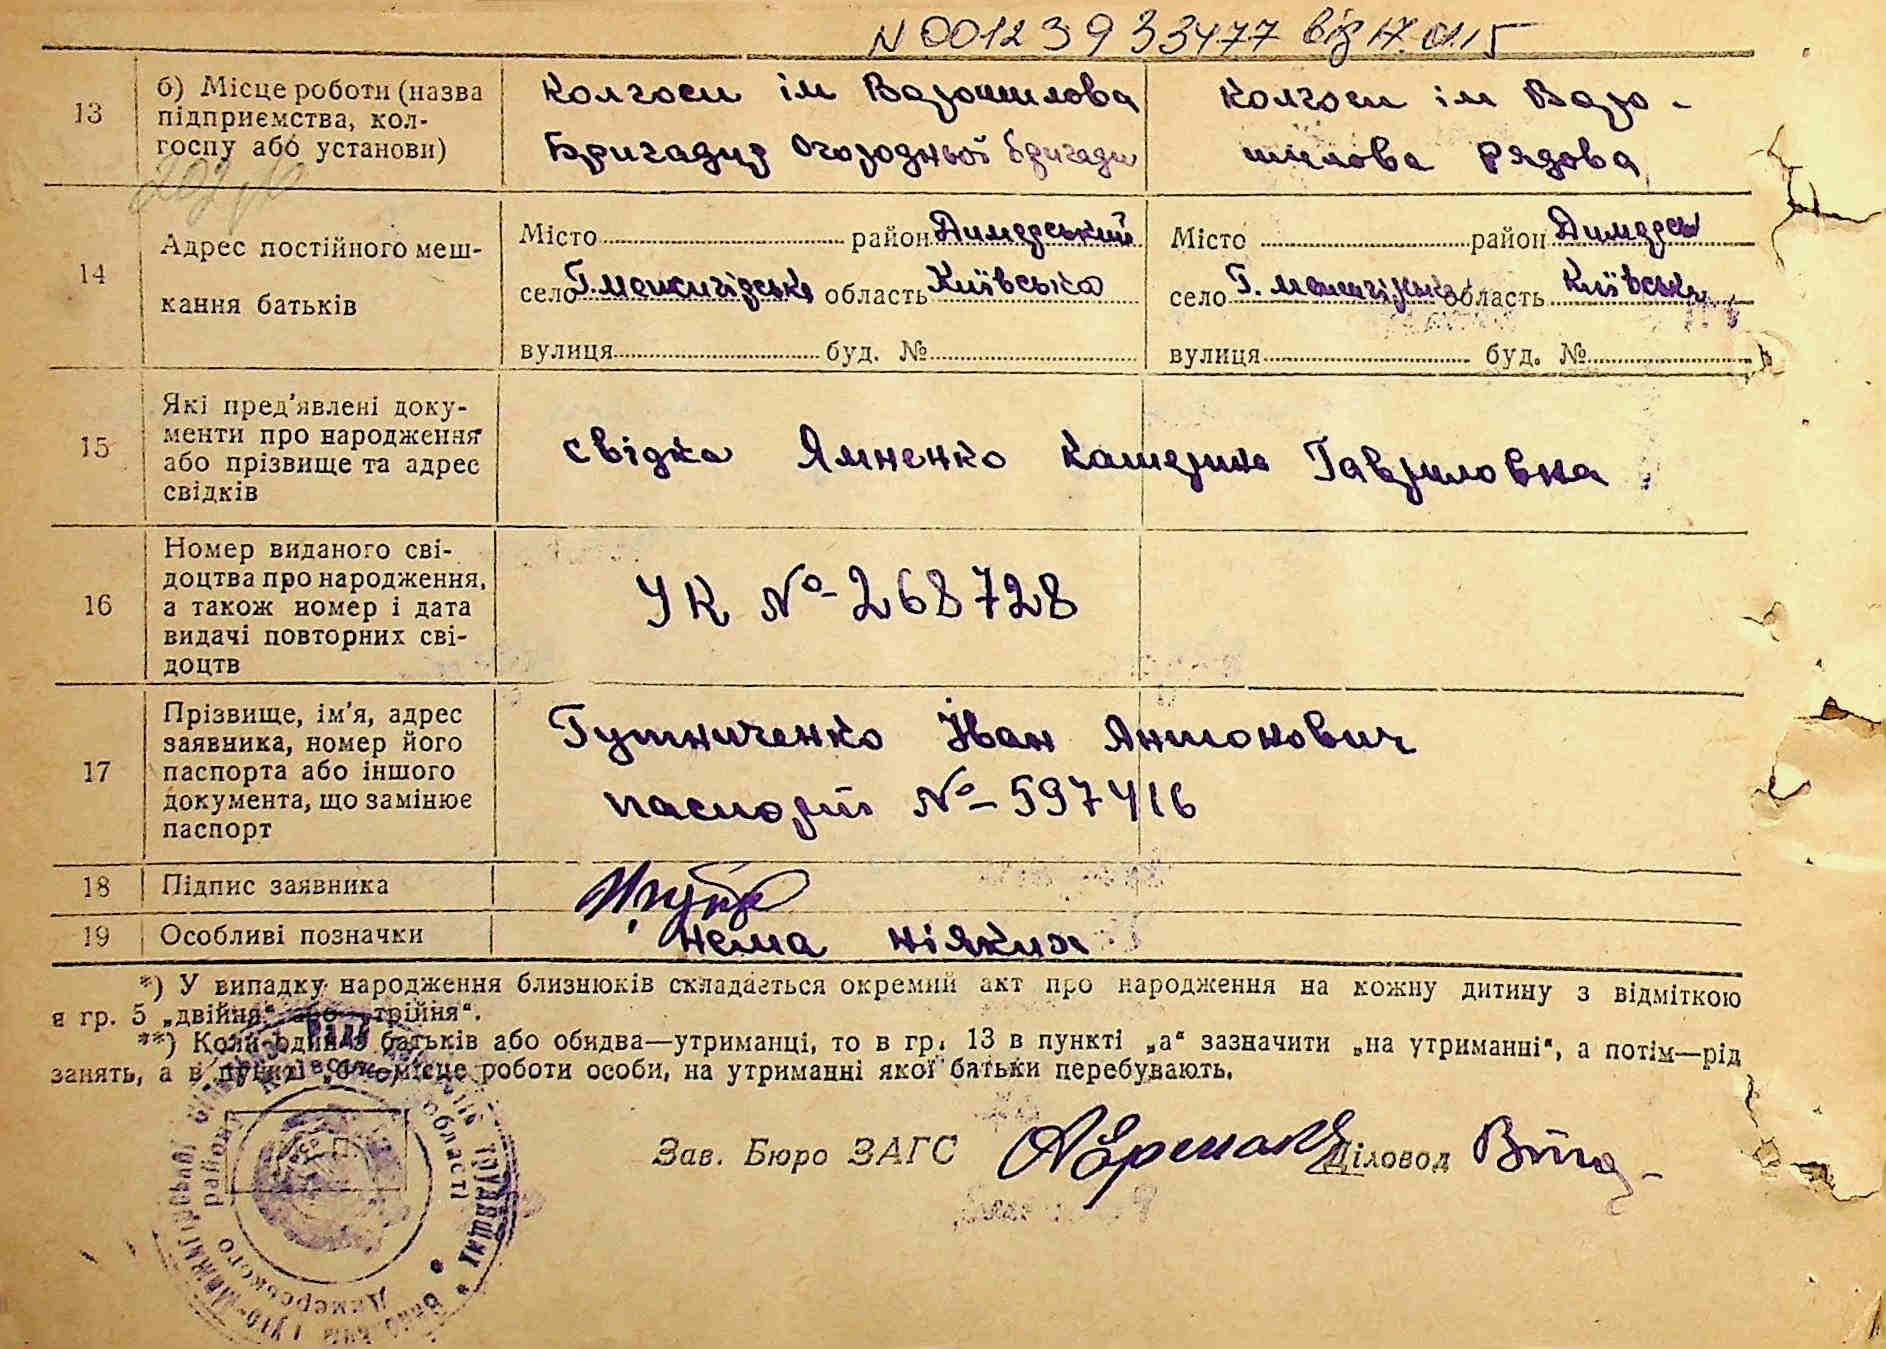 N 00123933477 від 17.01.15
13
б) Місце роботи (назва підприємства, колгоспу або установи)
Колгосп ім Ворошилова
Бригадир Огородньої бригади
Колгосп ім Воро-
шилова рядова
14
Адрес постійного меш-
кання батьків
Місто район Димерський
село Г. Межигірське область Київська
вулиця буд. №
Місто район Димерськ
село Г. Межигірське область Київська
вулиця буд. №
15
Які пред'явлені доку-
менти про народження
або прізвище та адрес
свідків
свідка Ямненко Катерина Гавриловна
16
Номер виданого сві-
доцтва про народження,
а також номер і дата
видачі повторних сві-
доцтв
УК № 268728
17
Прізвище, ім'я, адрес
заявника, номер його
паспорта або іншого
документа, що замінює
паспорт
Гутниченко Іван Антонович
паспорт № 597416
18
Підпис заявника
19
Особливі позначки
нема ніяких
*) У випадку народження близнюків складається окремий акт про народження на кожну дитину з відміткою
в гр. 5 „двійня“ або „трійня“.
**) Коли один з батьків або обидва—утриманці, то в гр. 13 в пункті „а“ зазначити „на утриманні“, а потім—рід
занять, а в пункті „б“ місце роботи особи, на утриманні якої батьки перебувають.
Зав. Бюро ЗАГС Діловод